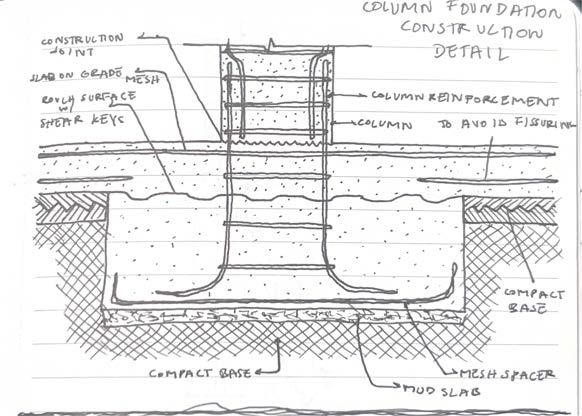 COLUMN FOUNDATION
CONSTRUCTION
DETAIL
CONSTRUCTION
JOINT
SLAB ON GRADE MESH
ROUGH SURFACE
W/
SHEAR KEYS
COLUMN REINFORCEMENT
COLUMN
TO AVOID FISSURING
COMPACT
BASE
COMPACT BASE
MESH SPACER
MUD SLAB